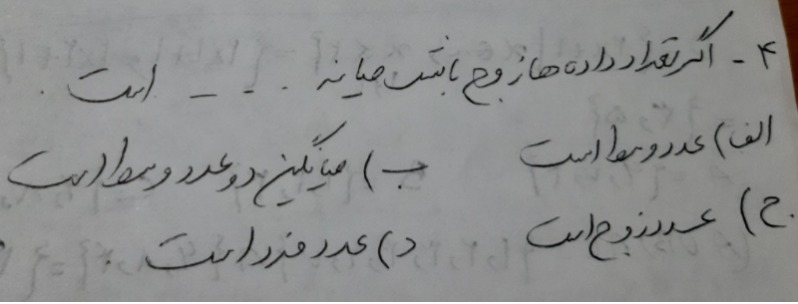 ۴ - اگر تعداد داده ها زوج باشد میانه . . . - - است .
الف) عدد وسط است ب) میانگین دو عدد وسط است
ج) عدد زوج است د) عدد فرد است